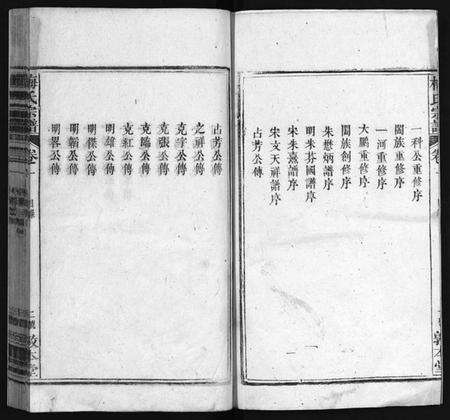 一科公重修序
闔族重修序
一河重修序
大鵬重修序
闔族創修序
朱懋炳譜序
明朱芬國譜序
宋朱熹譜序
宋文天祥譜序
占芳公傳
一
敦本堂
占芳公傳
之祥公傳
克字公傳
克張公傳
克臨公傳
克紅公傳
明雄公傳
明樑公傳
明韜公傳
明畧公傳
梅氏宗譜
卷一
目錄
二號
敦本堂